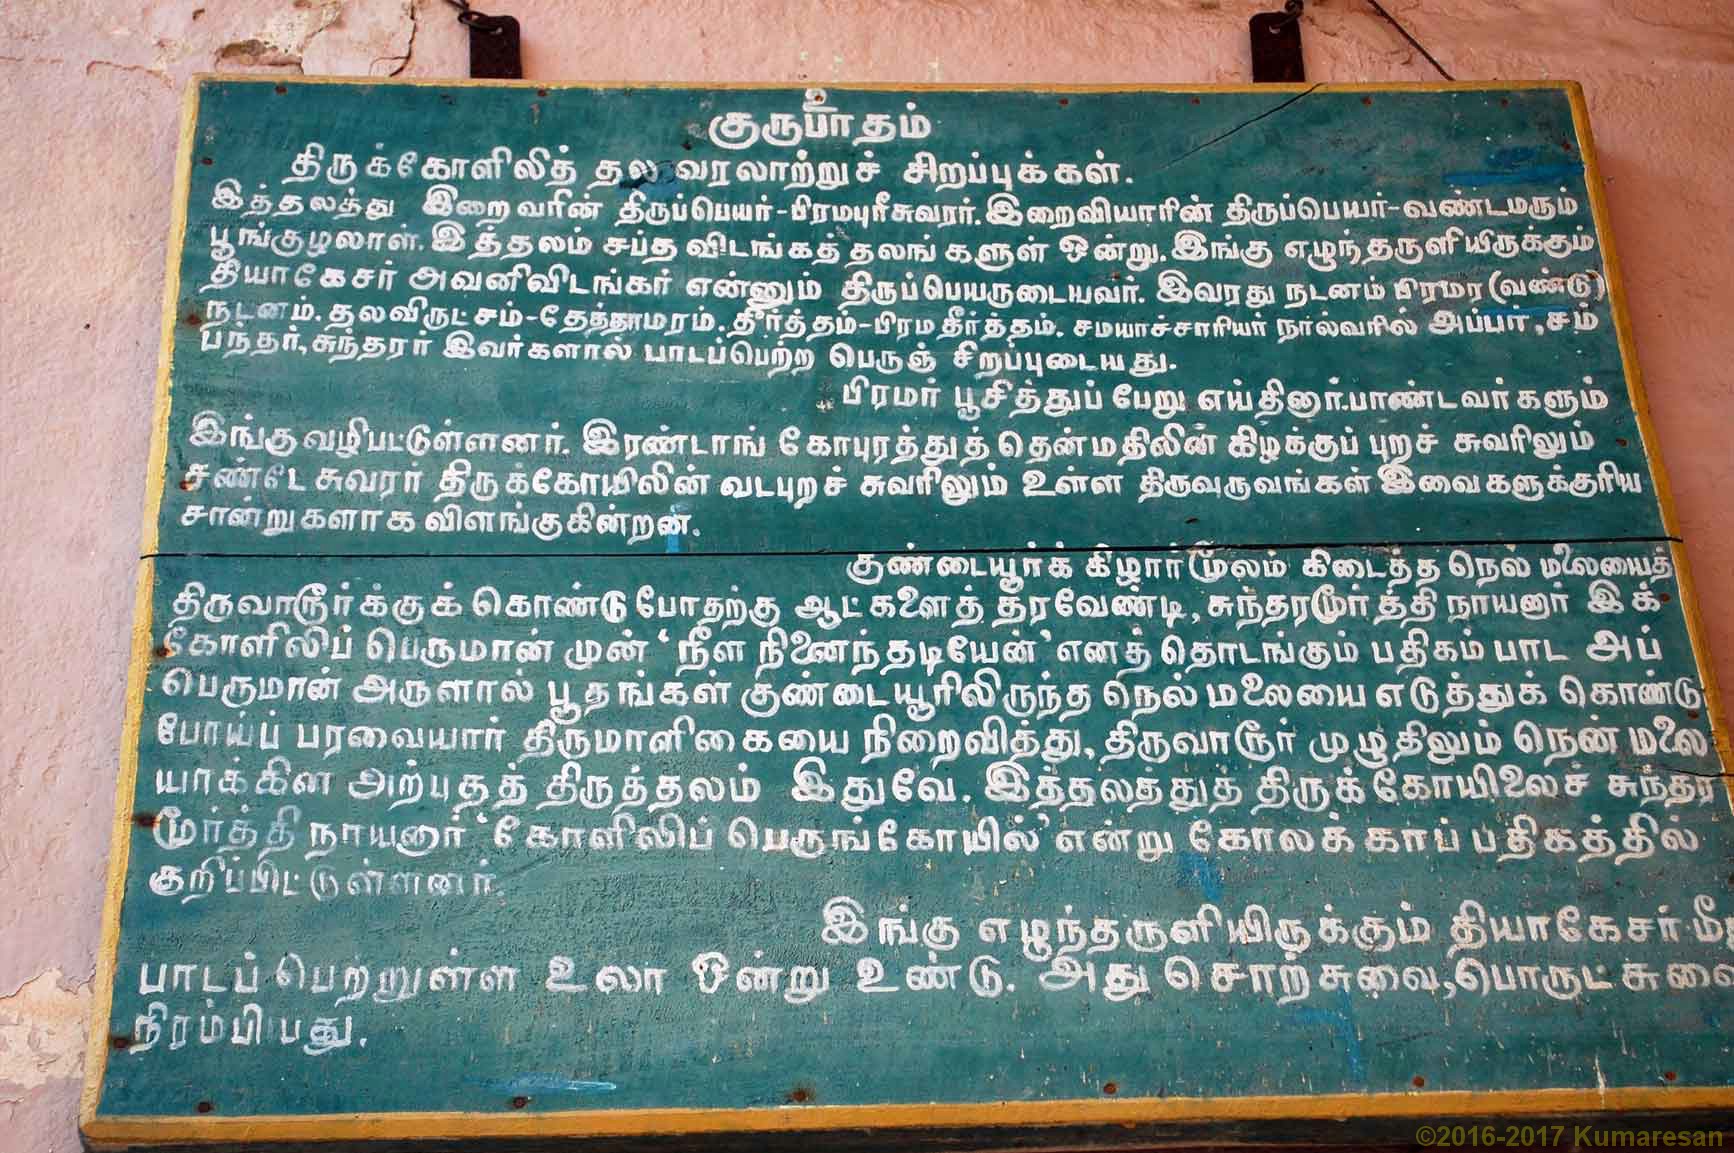 உ
குருபாதம்
திருக்கோளிலித் தல வரலாற்றுச் சிறப்புக்கள்.
இத்தலத்து இறைவரின் திருப்பெயர்-பிரமபுரீசுவரர். இறைவியாரின் திருப்பெயர்-வண்டமரும்
பூங்குழலாள். இத்தலம் சப்த விடங்கத் தலங்களுள் ஒன்று. இங்கு எழுந்தருளியிருக்கும்
தியாகேசர் அவனிவிடங்கர் என்னும் திருப்பெயருடையவர். இவரது நடனம் பிரமர (வண்டு)
நடனம். தலவிருட்சம்-தேத்தாமரம். தீர்த்தம்-பிரம தீர்த்தம். சமயாச்சாரியர் நால்வரில் அப்பர், சம்
பந்தர், சுந்தரர் இவர்களால் பாடப்பெற்ற பெருஞ் சிறப்புடையது.
பிரமர் பூசித்துப் பேறு எய்தினார். பாண்டவர்களும்
இங்கு வழிபட்டுள்ளனர். இரண்டாங் கோபுரத்துத் தென்மதிலின் கிழக்குப் புறச் சுவரிலும்
சண்டேசுவரர் திருக்கோயிலின் வடபுறச் சுவரிலும் உள்ள திருவுருவங்கள் இவைகளுக்குரிய
சான்றுகளாக விளங்குகின்றன.
குண்டையூர்க் கிழார் மூலம் கிடைத்த நெல் மலையைத்
திருவாரூர்க்குக் கொண்டு போதற்கு ஆட்களைத் தரவேண்டி, சுந்தரமூர்த்தி நாயனார் இக்
கோளிலிப் பெருமான் முன் ‘நீள நினைந்தடியேன்’ எனத் தொடங்கும் பதிகம் பாட அப்
பெருமான் அருளால் பூதங்கள் குண்டையூரிலிருந்த நெல் மலையை எடுத்துக் கொண்டு
போய்ப் பரவையார் திருமாளிகையை நிறைவித்து, திருவாரூர் முழுதிலும் நென் மலை
யாக்கின அற்புதத் திருத்தலம் இதுவே. இத்தலத்துத் திருக்கோயிலைச் சுந்தர
மூர்த்தி நாயனார் ‘கோளிலிப் பெருங்கோயில்’ என்று கோலக்காப் பதிகத்தில்
குறிப்பிட்டுள்ளனர்.
இங்கு எழுந்தருளியிருக்கும் தியாகேசர்
பாடப் பெற்றுள்ள உலா ஒன்று உண்டு. அது சொற்சுவை, பொருட் சுவை
நிரம்பியது.
©2016-2017 Kumaresan